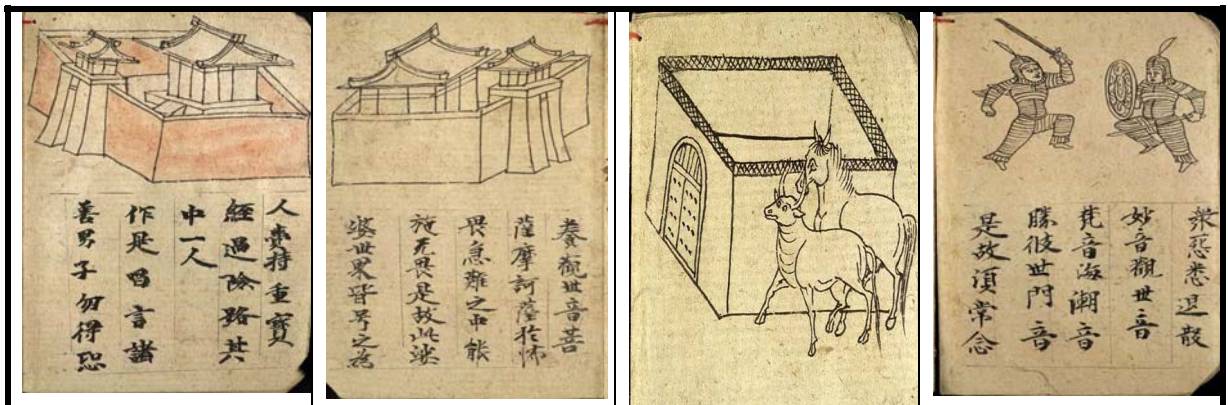 人齎持重寶
經過險路其
中一人
作是唱言諸
善男子勿得恐
養觀世音菩
薩摩訶薩於怖
畏急難之中能
施无畏是故此娑
婆世界皆号之為
衆惡悉退散
妙音觀世音
梵音海潮音
勝彼世門音
是故須常念